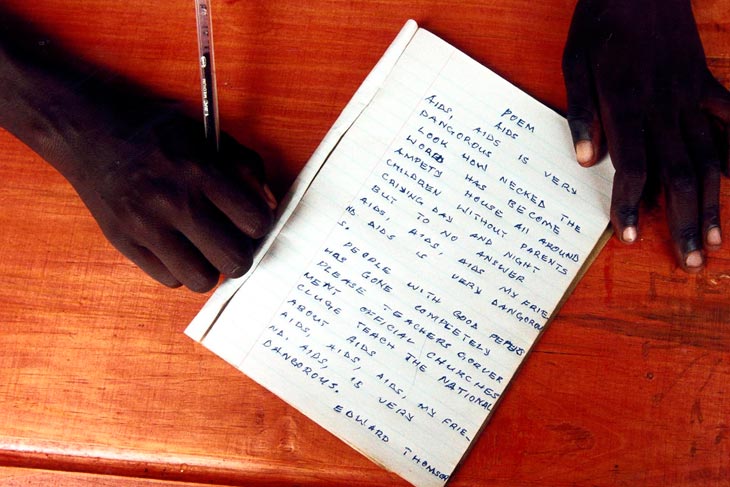 POEM
AIDS
AIDS, AIDS IS VERY
DANGOROUS
LOOK HOW NECKED THE
WORD HAS BECOME
AMPETY HOUSE ALL AROUND
CHILDREN WITHOUT PARENTS
CRIYING DAY AND NIGHT
BUT TO NO ANSWER
AIDS, AIDS, AIDS MY FRIE-
ND AIDS IS VERY DANGOROU
S.
PEOPLE WITH GOOD
HAS GONE COMPLETELY
PLEASE TEACHERS GORVER
MENT OFFICIAL CHURCHES
CLUGE TEACH THE NATIONAL
ABOUT AIDS
AIDS, AIDS, AIDS, MY FRIE-
ND. AIDS, IS VERY
DANGOROUS.
EDWARD THOMSON